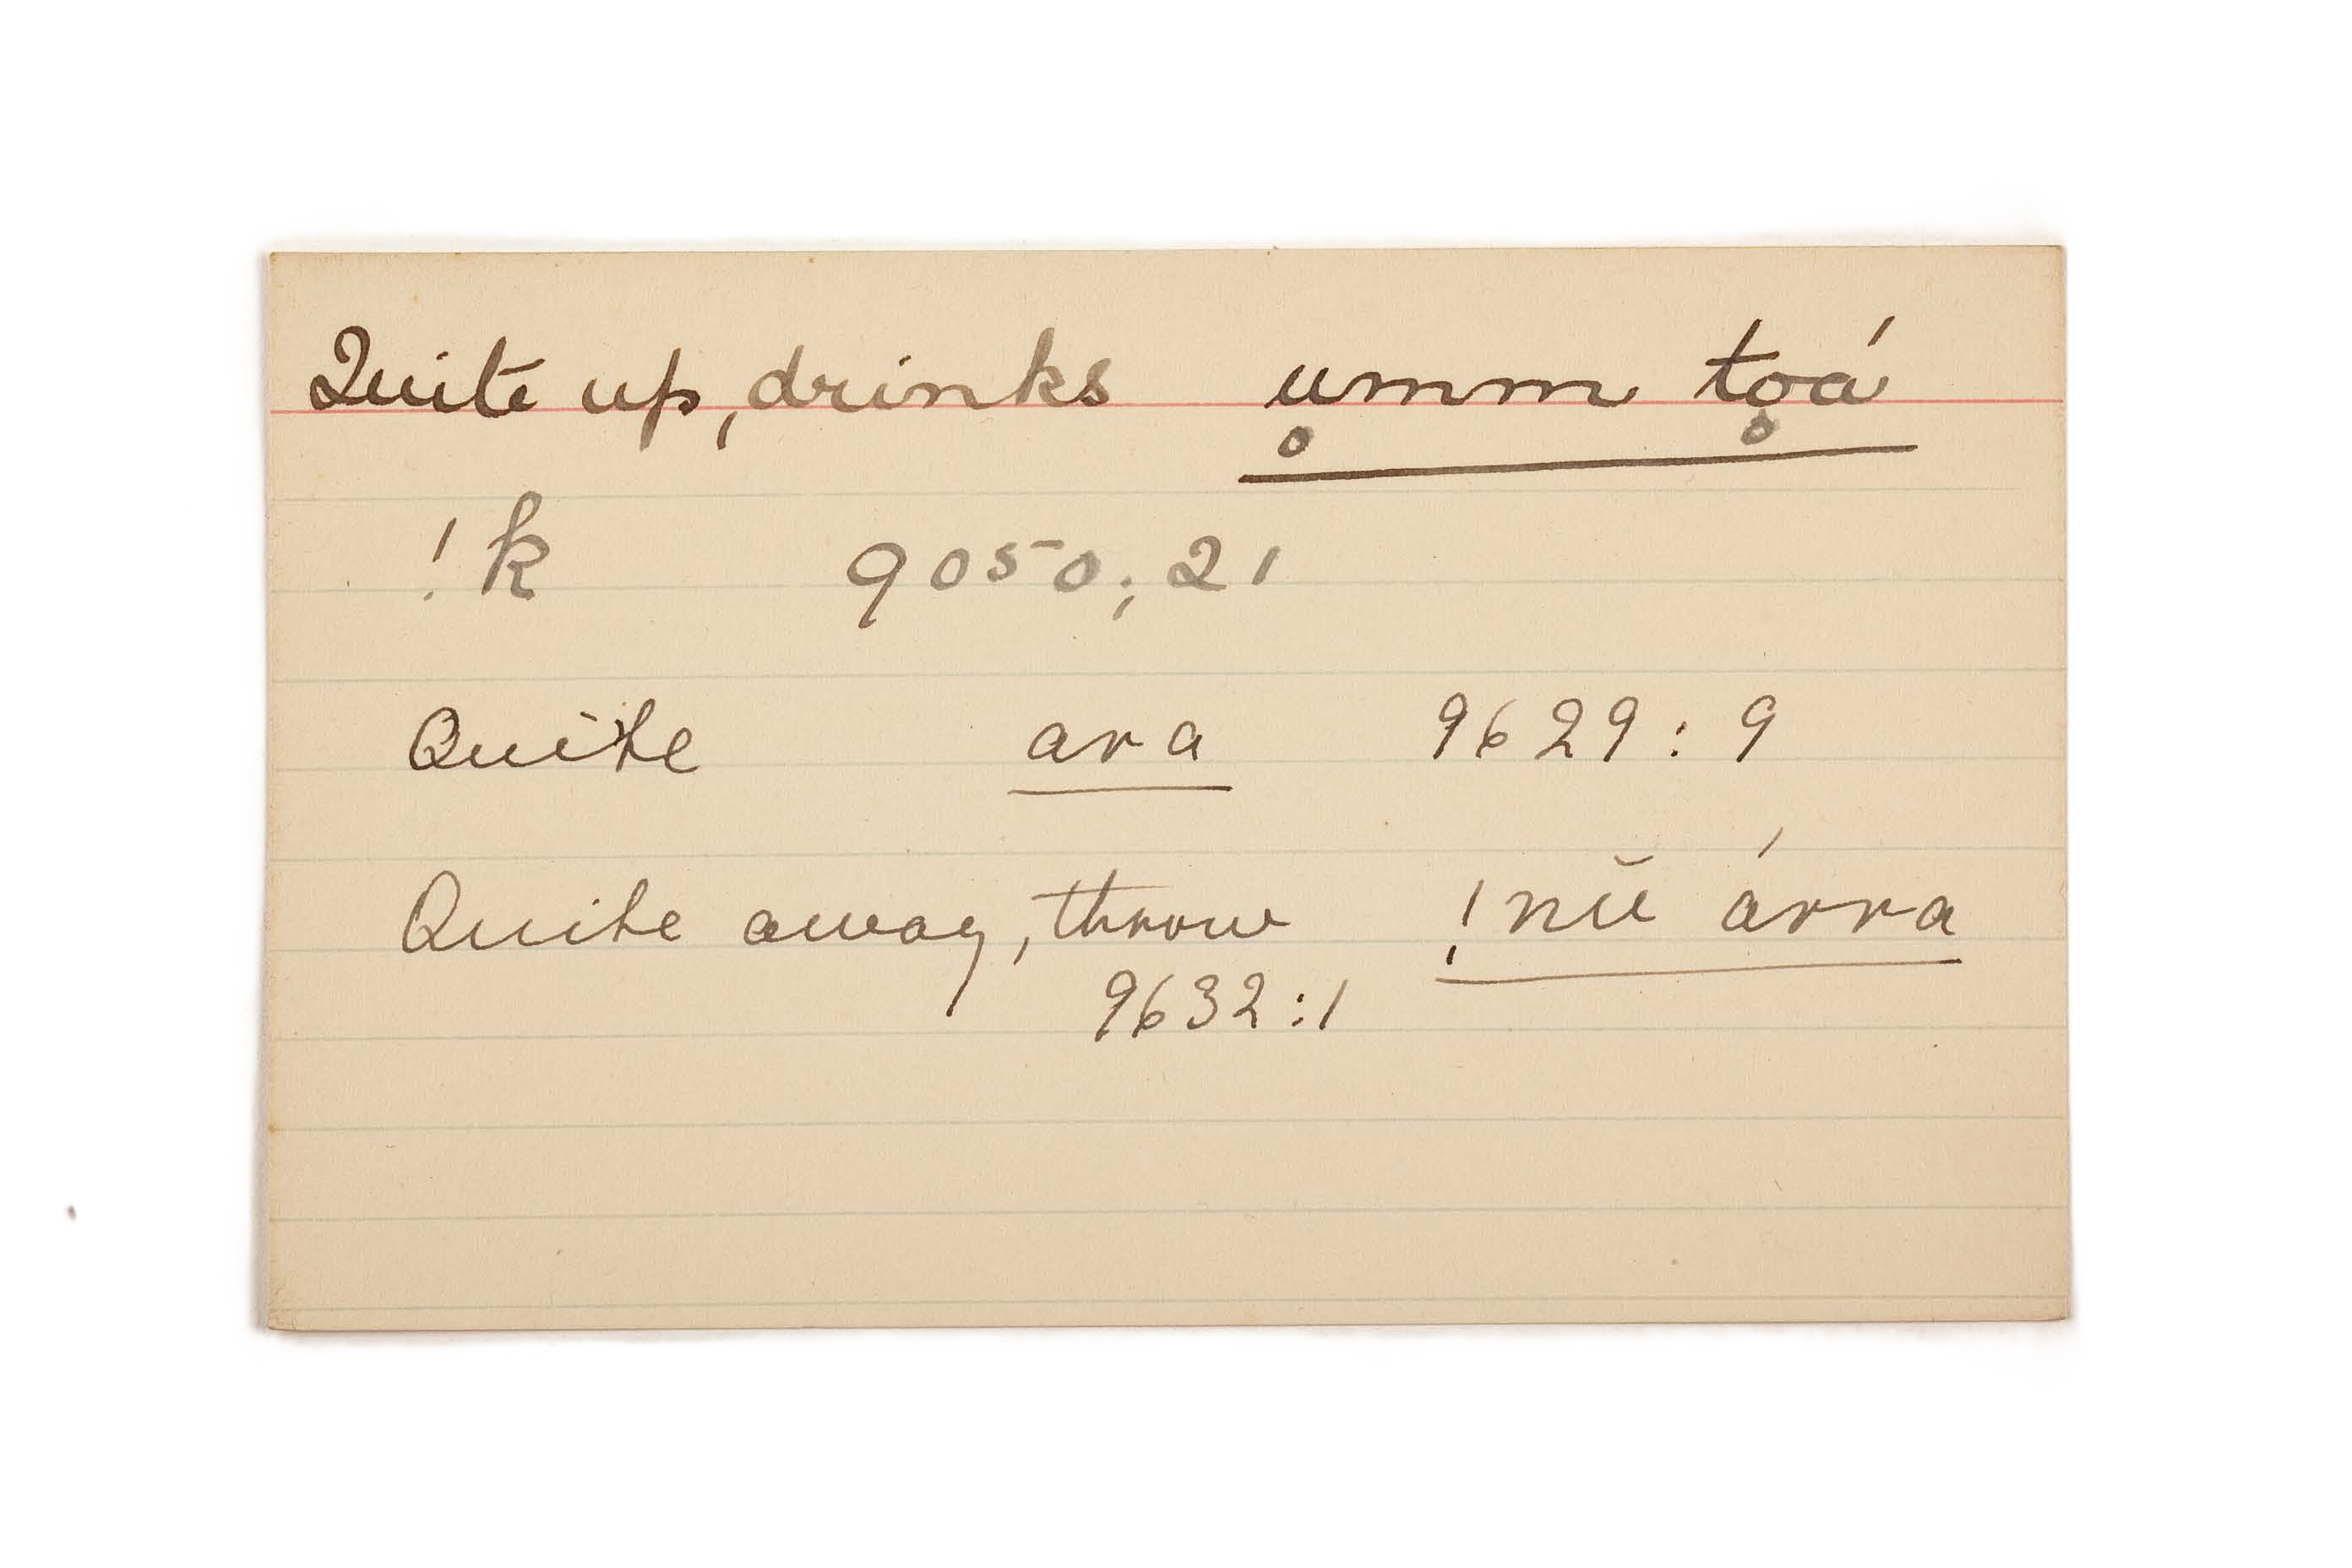 Quite up, drinks u̥mm to̥á
!k 9050; 21
Quite ara 9629: 9
Quite away, throw !nū árra
9632:1